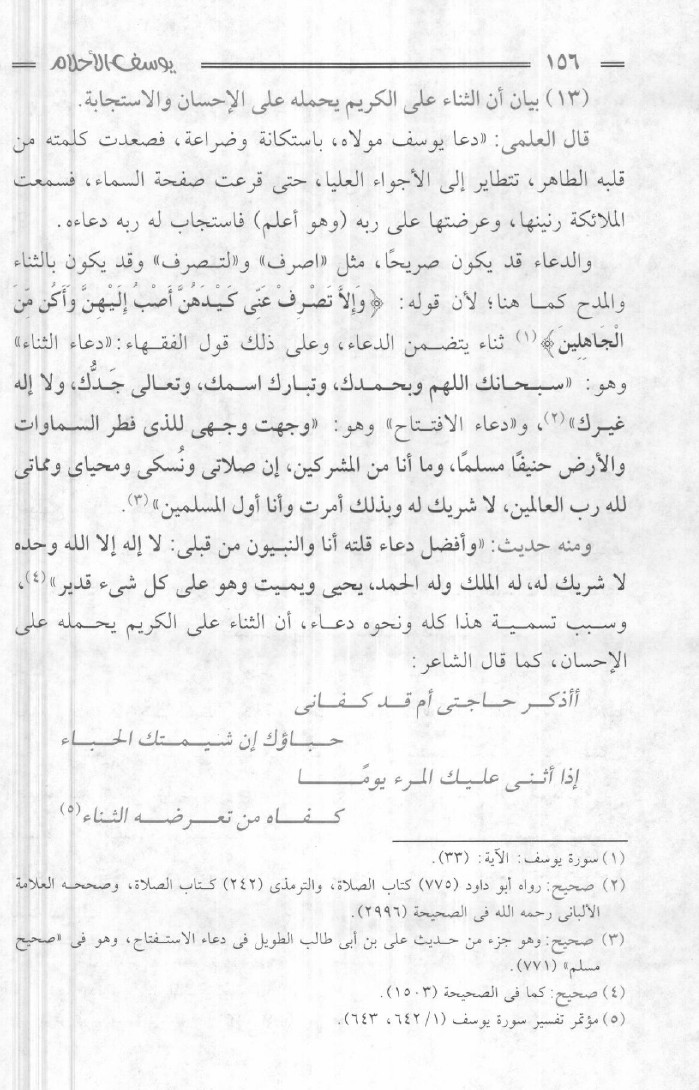 ١٥٦ يوسف الأحلام
(١٣) بيان أن الثناء على الكريم يحمله على الإحسان والاستجابة.
قال العلمى: «دعا يوسف مولاه، باستكانة وضراعة، فصعدت كلمته من
قلبه الطاهر، تتطاير إلى الأجواء العليا، حتى قرعت صفحة السماء، فسمعت
الملائكة رنينها، وعرضتها على ربه (وهو أعلم) فاستجاب له ربه دعاءه.
والدعاء قد يكون صريحًا، مثل «اصرف» و«لتصرف» وقد يكون بالثناء
والمدح كما هنا؛ لأن قوله: ﴿وَإِلاَّ تَصْرِفْ عَنِّى كَيْدَهُنَّ أَصْبُ إِلَيْهِنَّ وَأَكُن مِّنَ
الْجَاهِلِينَ﴾(١) ثناء يتضمن الدعاء، وعلى ذلك قول الفقهاء: «دعاء الثناء»
وهو: «سبحانك اللهم وبحمدك، وتبارك اسمك، وتعالى جَدُّك، ولا إله
غيرك»(٢)، و«دعاء الافتتاح» وهو: «وجهت وجهى للذى فطر السماوات
والأرض حنيفًا مسلمًا، وما أنا من المشركين، إن صلاتى ونُسكى ومحياى ومماتى
لله رب العالمين، لا شريك له وبذلك أمرت وأنا أول المسلمين»(٣).
ومنه حديث: «وأفضل دعاء قلته أنا والنبيون من قبلى: لا إله إلا الله وحده
لا شريك له، له الملك وله الحمد، يحيى ويميت وهو على كل شىء قدير»(٤)،
وسبب تسمية هذا كله ونحوه دعاء، أن الثناء على الكريم يحمله على
الإحسان، كما قال الشاعر:
أأذكر حاجتى أم قد كفانى
حباؤك إن شيمتك الحباء
إذا أثنى عليك المرء يومًا
كفاه من تعرضه الثناء(٥)
(١) سورة يوسف: الآية: (٣٣).
(٢) صحيح: رواه أبو داود (٧٧٥) كتاب الصلاة، والترمذى (٢٤٢) كتاب الصلاة، وصححه العلامة
الألبانى رحمه الله فى الصحيحة (٢٩٩٦).
(٣) صحيح: وهو جزء من حديث على بن أبى طالب الطويل فى دعاء الاستفتاح، وهو فى «صحيح
مسلم» (٧٧١).
(٤) صحيح: كما فى الصحيحة (١٥٠٣).
(٥) مؤتمر تفسير سورة يوسف (١/ ٦٤٢، ٦٤٣).